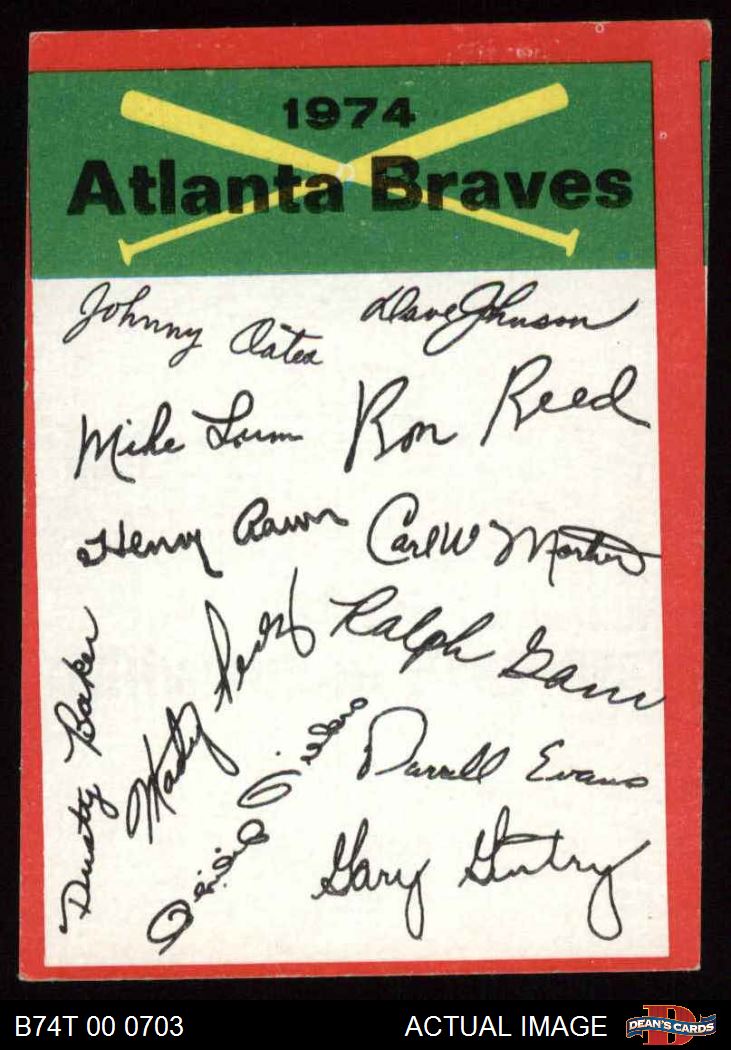 1974
Atlanta Braves
Johnny Oates
Dave Johnson
Mike Lum
Ron Reed
Henry Aaron
Carl W Morton
Dusty Baker
Marty Perez
Ralph Garr
Darrell Evans
Gary Gentry
B74T 00 0703
ACTUAL IMAGE
DEAN'S CARDS